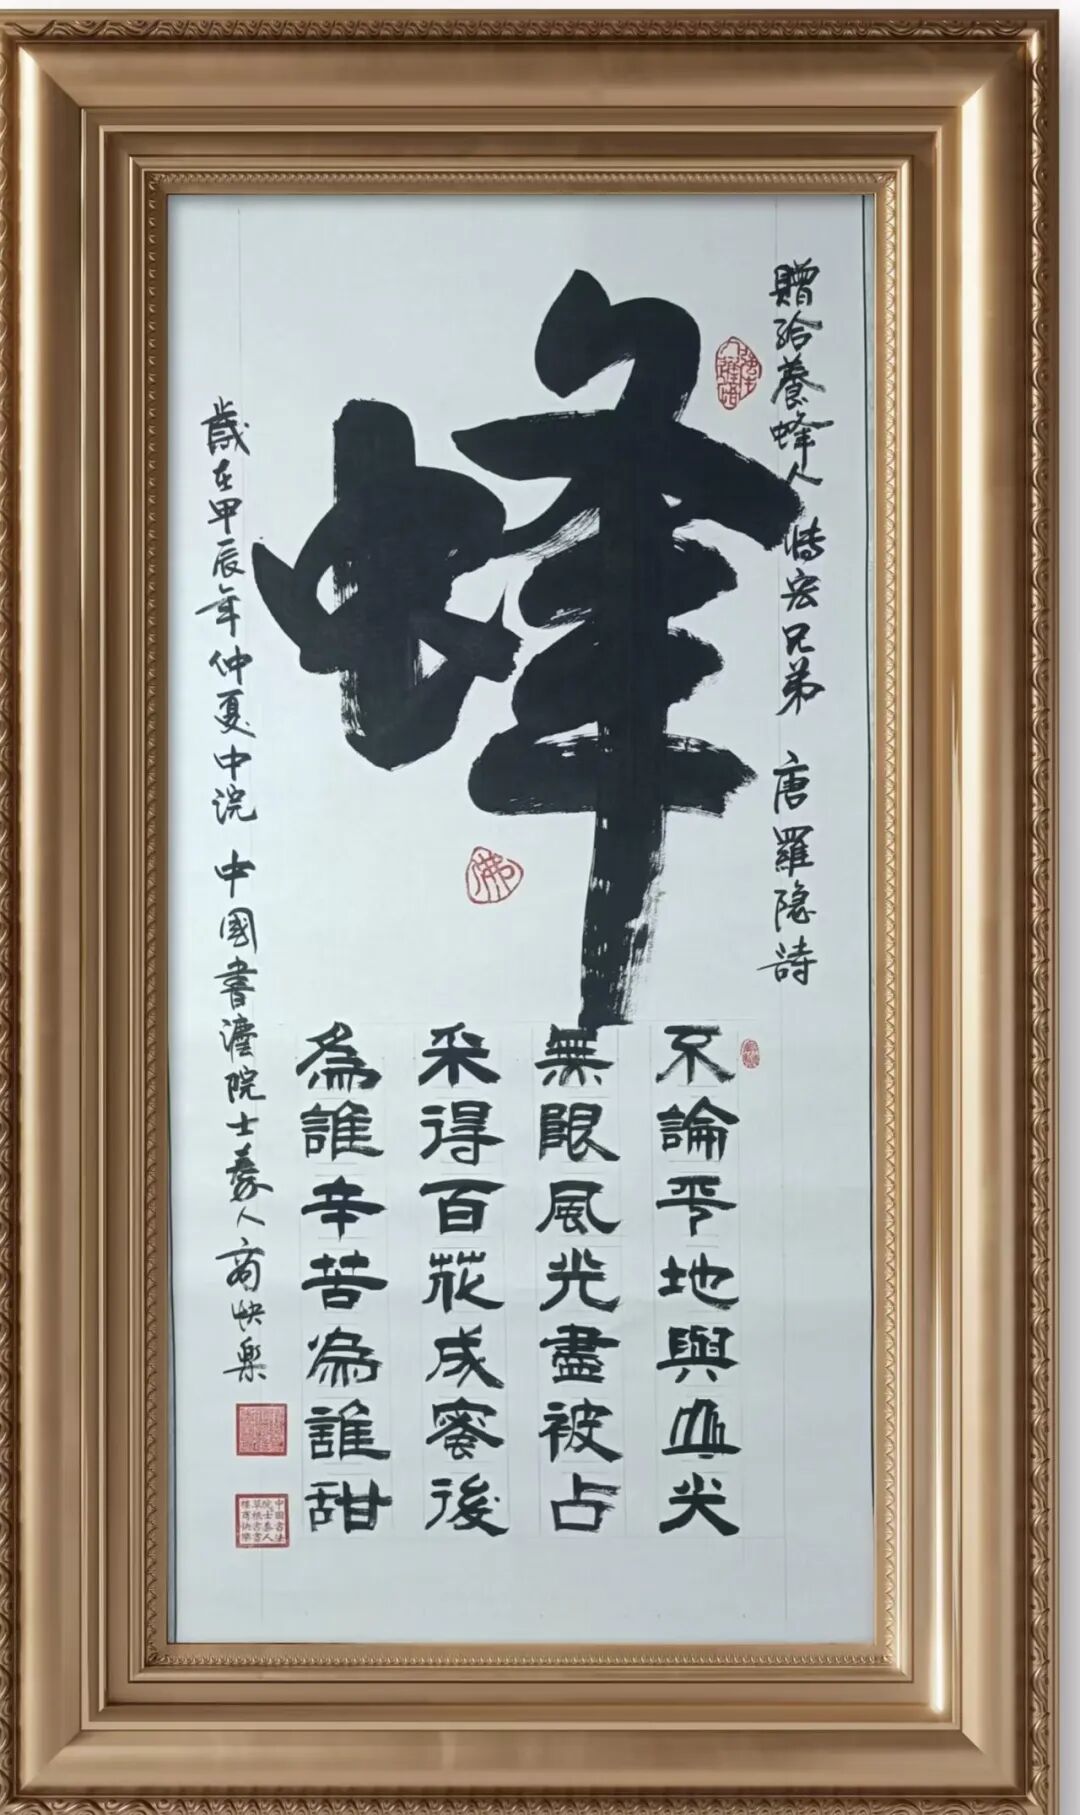 贈给養蜂人 涛宏兄弟 唐羅隐詩
蜂
佛
不論平地與山尖
無限風光盡被占
采得百花成蜜後
為誰辛苦為誰甜
歲在甲辰年仲夏中浣 中國書灋院士人商快樂